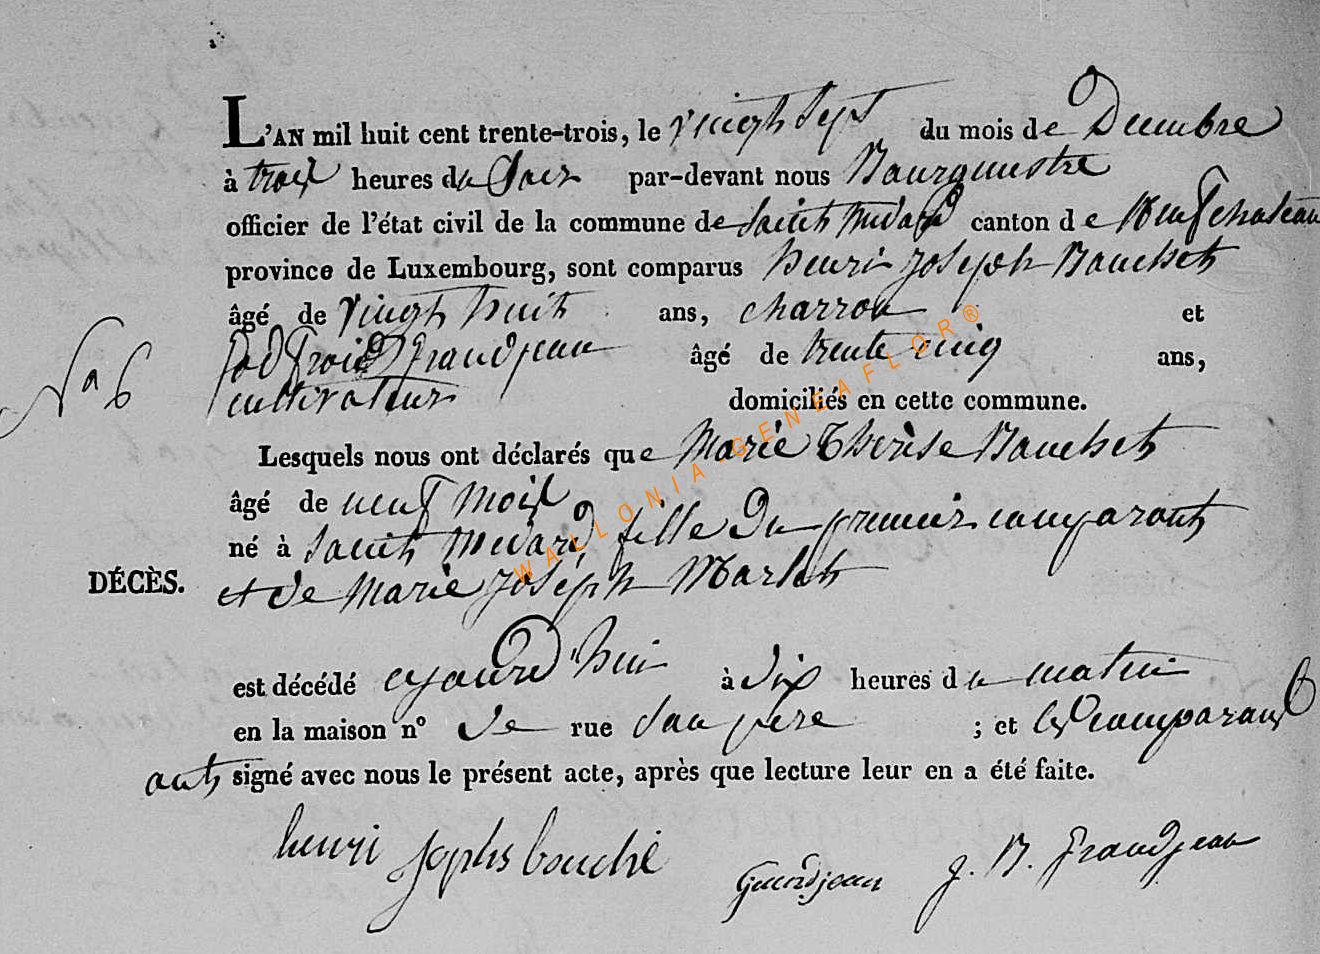 L'AN mil huit cent trente-trois, le vingt Sept du mois de Decembre
à trois heures du Soir par-devant nous Bourguestre
officier de l'état civil de la commune de Saint Medard canton de Neufchateau
province de Luxembourg, sont comparus henri joseph Bauchet
âgé de vingt huit ans, charron et
God froid grandjean âgé de trente cinq ans,
N° 6
cultivateur domiciliés en cette commune.
Lesquels nous ont déclarés que Marie Therèse Bauchet
âgé de neuf mois
né à Saint Medard, fille du premier comparant
DÉCÈS.
et de Marie joseph Marlet
est décédé ajourd'hui à dix heures du matin
en la maison n° de rue Son père ; et les comparans
ont signé avec nous le présent acte, après que lecture leur en a été faite.
henri Jophs bouché
Grandjean J. B. Grandjean
WALLONIA-GENEAFLOR®